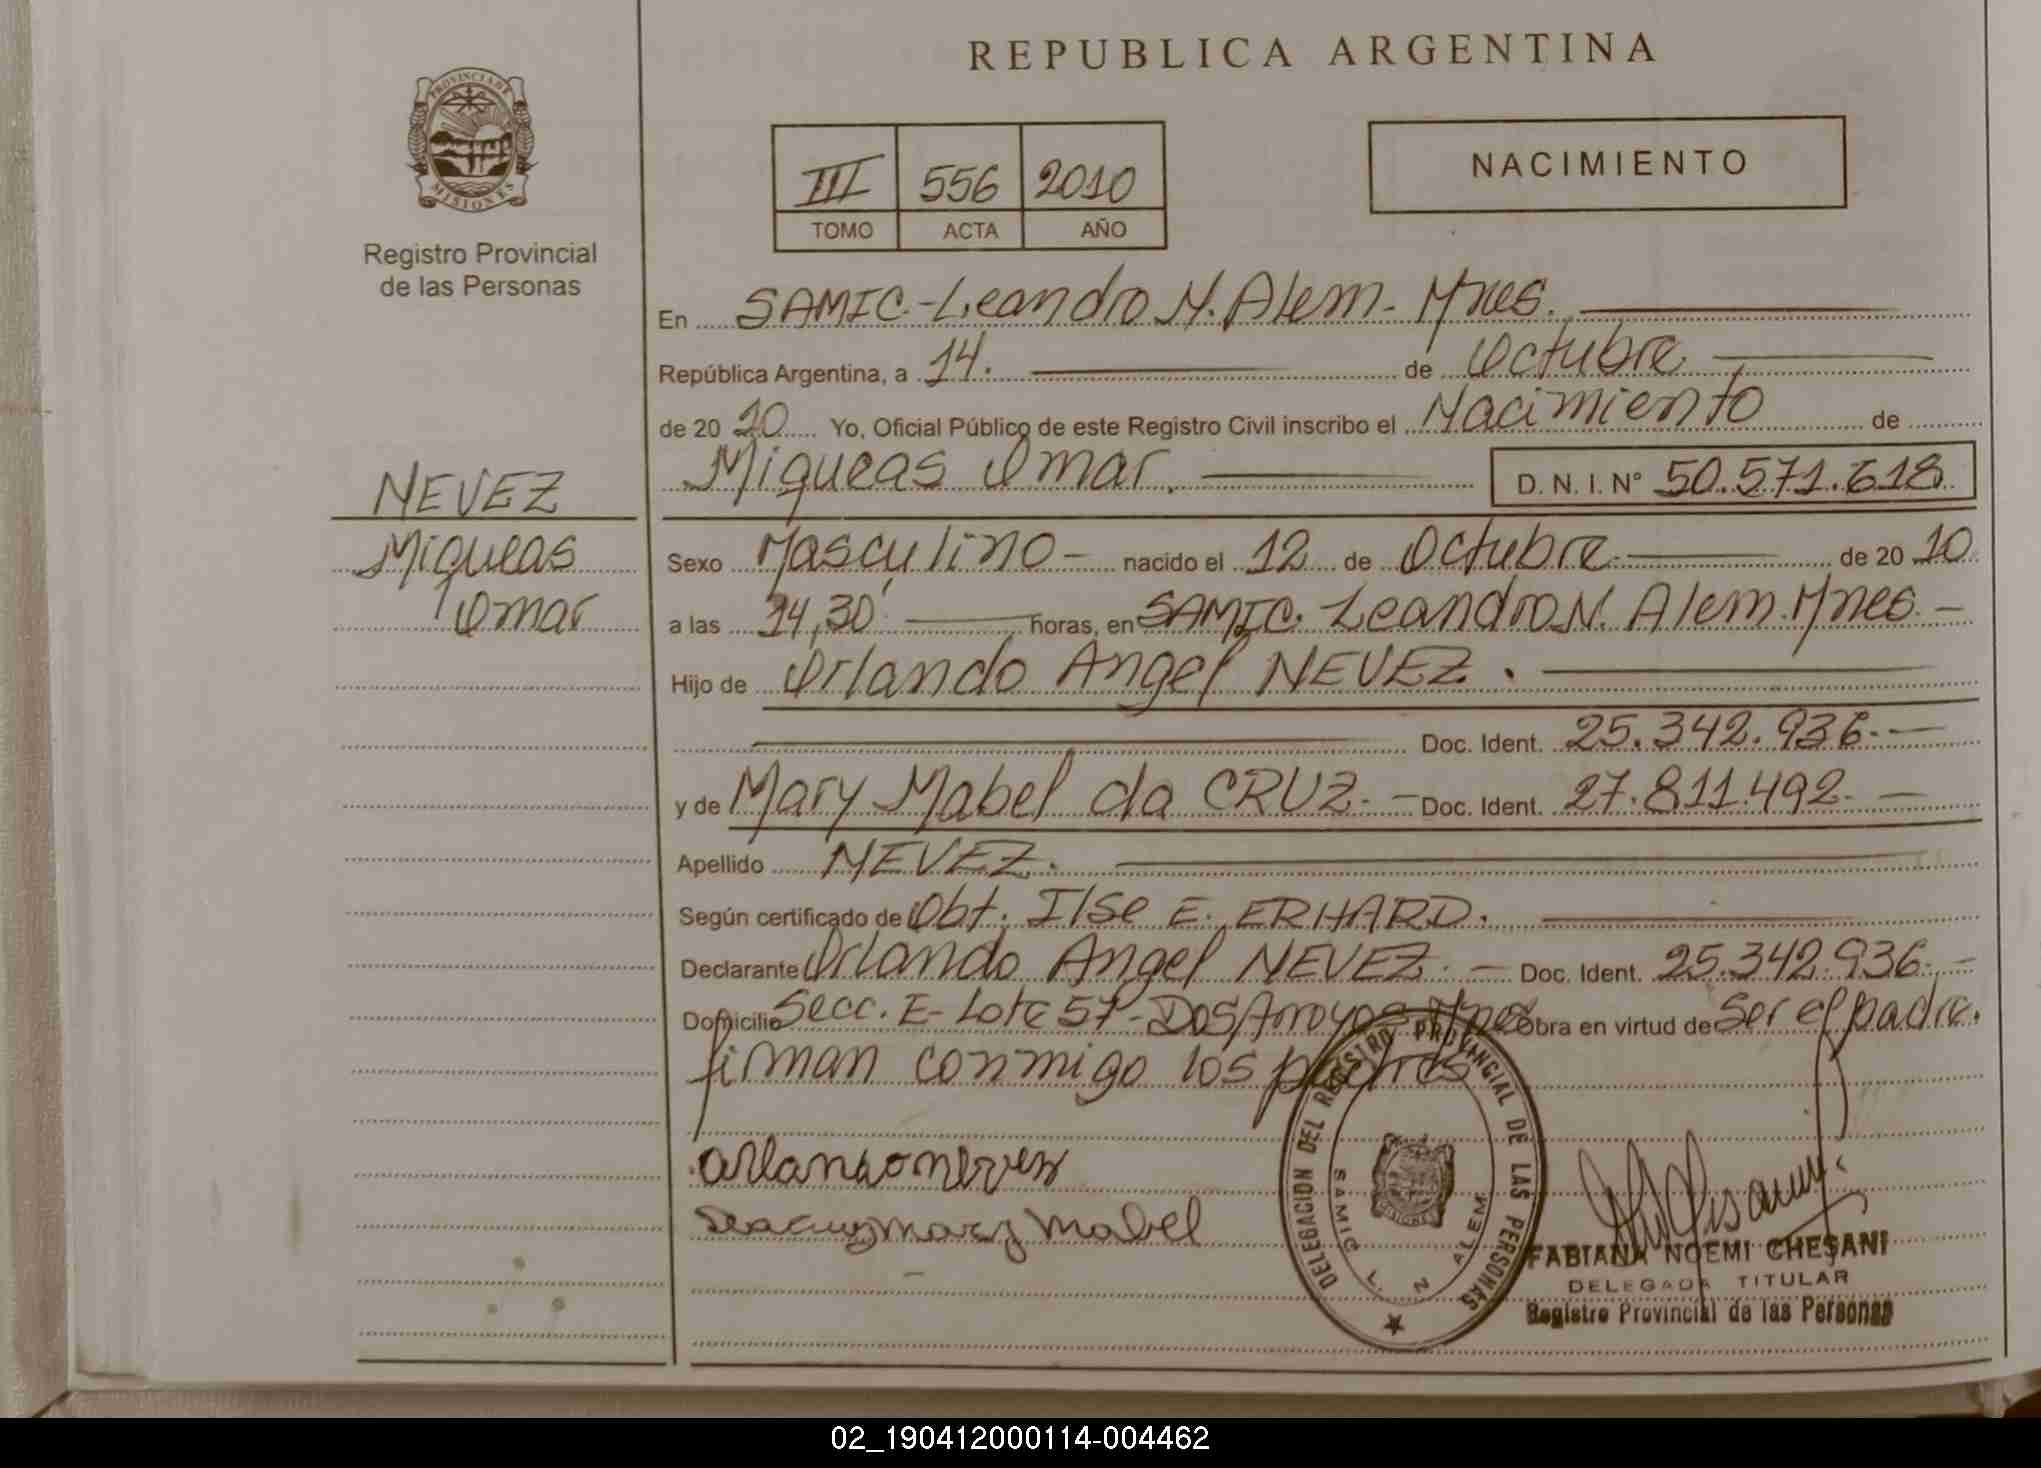 REPUBLICA ARGENTINA
PROVINCIA DE
MISIONES
Registro Provincial
de las Personas
III 556 2010
TOMO ACTA AÑO
NACIMIENTO
En SAMIC-Leandro N. Alem- Mnes.
República Argentina, a 14. de Octubre
de 20 10 Yo, Oficial Público de este Registro Civil inscribo el Nacimiento de
Miqueas Omar. D. N. I. Nº 50.571.618
NEVEZ
Miqueas
Omar
Sexo Masculino - nacido el 12 de Octubre de 20 10
a las 14,30' horas, en SAMIC. Leandro N. Alem. Mnes. -
Hijo de Orlando Angel NEVEZ.
Doc. Ident. 25.342.936.-
y de Mary Mabel da CRUZ. - Doc. Ident. 27.811.492. -
Apellido NEVEZ.
Según certificado de Obt. Ilse E. ERHARD.
Declarante Orlando Angel NEVEZ. - Doc. Ident. 25.342.936. -
Domicilio Secc. E- Lote 57-Dos Arroyos Mnes Obra en virtud de Ser el padre.
firman conmigo los padres
Mary Mabel
DELEGACION DEL REGISTRO PROVINCIAL DE LAS PERSONAS
SAMIC L. N. ALEM
MISIONES
FABIANA NOEMI CHESANI
DELEGADA TITULAR
Registro Provincial de las Personas
02_190412000114-004462